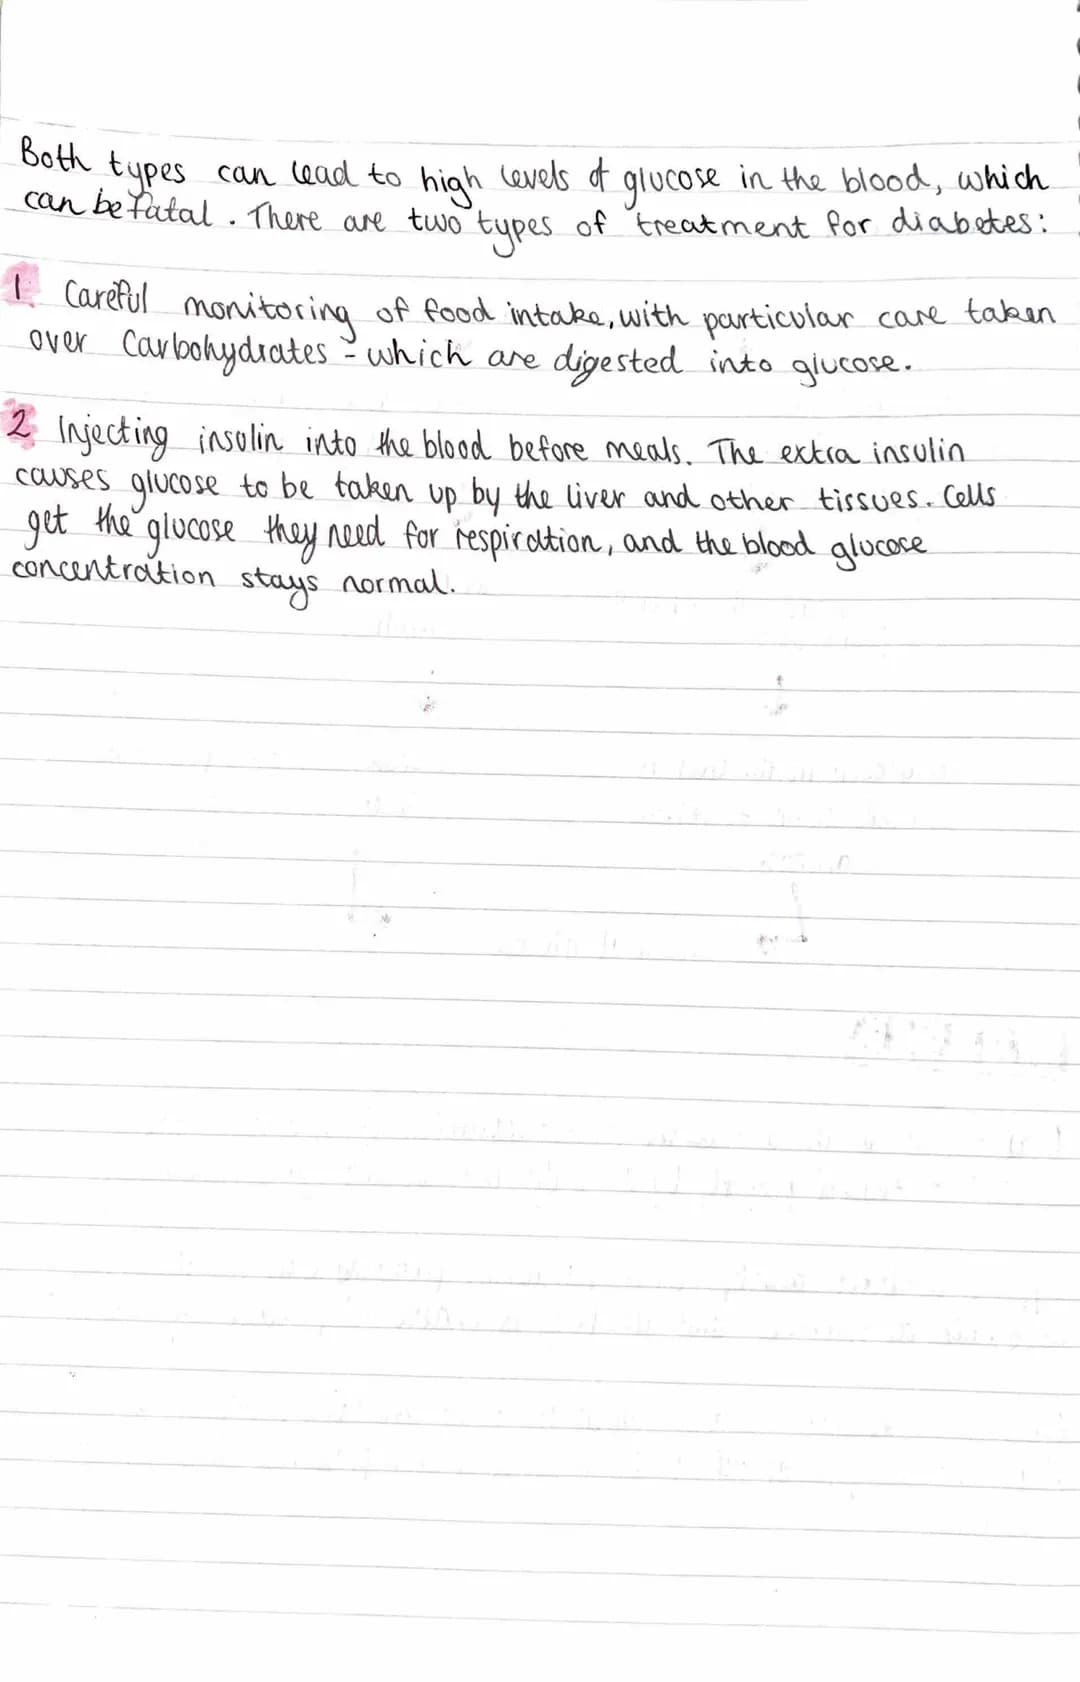 Both types can lead to high levels of glucose in the blood, which
can be fatal. There are two types of treatment for diabetes:
1. Careful monitoring of food intake, with particular care taken
over Carbohydrates - which are digested into glucose.
2 Injecting insulin into the blood before meals. The extra insulin
causes glucose to be taken up by the liver and other tissues. Cells
get the glucose they need for respiration, and the blood glucose
concentration stays normal.